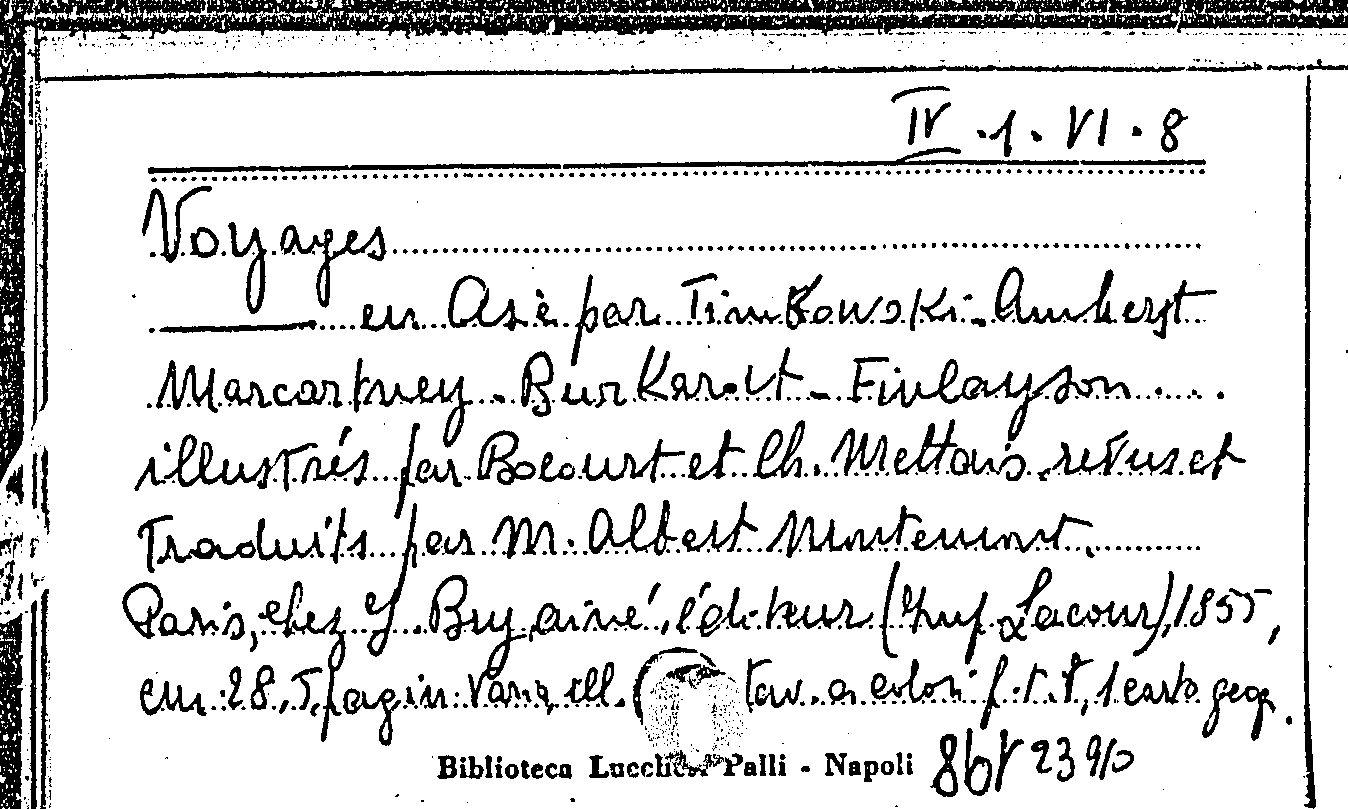 IV . 1 . VI . 8
Voyages
——— en Asie par Timkowski - Amherst
Marcartney - BurKardt - Finlayson ....
illustrés par Bocourt et Ch. Mettais, revus et
Traduits par M. Albert Montemont.
Paris, chez J. Bry, ainé, éditeur ( Lacour), 1855,
cm. 28,5, pagin. varia, ill. ( tav. a colori f. t.), 1 carta geog.
Biblioteca Lucchesi Palli - Napoli